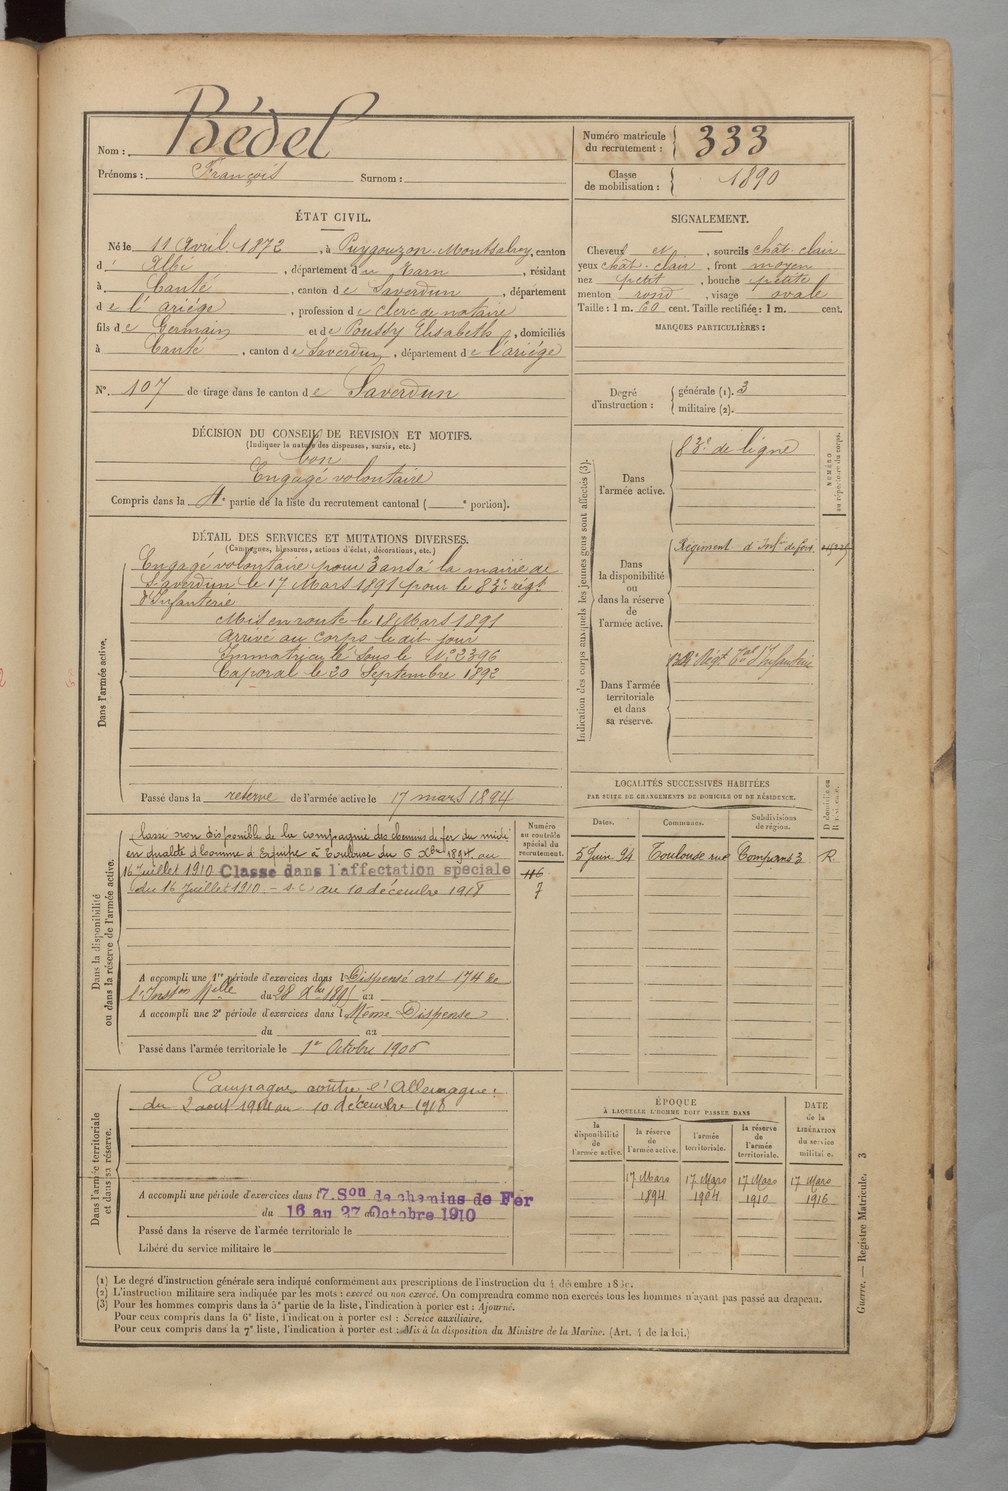 Nom : Bédel
Prénoms : François Surnom :
Numéro matricule du recrutement : 333
Classe de mobilisation : 1890
ÉTAT CIVIL.
Né le 11 Avril 1872, à Puygouzon-Montsalvy, canton
d' Albi, département du Tarn, résidant
à Canté, canton de Saverdun, département
de l'ariège, profession de clerc de notaire
fils de Germain et de Poussy Elisabeth, domiciliés
à Canté, canton de Saverdun, département de l'ariège
N° 107 de tirage dans le canton de Saverdun
SIGNALEMENT.
Cheveux et, sourcils chât. clair
yeux chât. clair, front moyen
nez petit, bouche petite
menton rond, visage ovale
Taille : 1 m. 60 cent. Taille rectifiée : 1 m. cent.
MARQUES PARTICULIÈRES :
Degré d'instruction : générale (1). 3
militaire (2).
DÉCISION DU CONSEIL DE REVISION ET MOTIFS.
(Indiquer la nature des dispenses, sursis, etc.)
bon
Engagé volontaire
Compris dans la 4e partie de la liste du recrutement cantonal ( e portion).
DÉTAIL DES SERVICES ET MUTATIONS DIVERSES.
(Campagnes, blessures, actions d'éclat, décorations, etc.)
Dans l'armée active.
Engagé volontaire pour 3 ans à la mairie de
Saverdun le 17 Mars 1891 pour le 83e régt
d'Infanterie
Mis en route le 18 Mars 1891
Arrivé au corps le dit jour
Immatriculé sous le N° 2396
Caporal le 20 Septembre 1892
Passé dans la réserve de l'armée active le 17 mars 1894
Indication des corps auxquels les jeunes gens sont affectés (3).
NUMÉRO au répertoire du corps.
Dans l'armée active.
83e de ligne
Dans la disponibilité ou dans la réserve de l'armée active.
Régiment d'Infie de
Dans l'armée territoriale et dans sa réserve.
Régt d'Infanterie
LOCALITÉS SUCCESSIVES HABITÉES
PAR SUITE DE CHANGEMENTS DE DOMICILE OU DE RÉSIDENCE.
Dates. Communes. Subdivisions de région.
5 Juin 94 Toulouse rue Compans 3 R.
Dans la disponibilité ou dans la réserve de l'armée active.
Numéro au contrôle spécial du recrutement.
116
7
Classé non disponible de la compagnie des chemins de fer du midi
en qualité d'homme d'équipe à Toulouse du 6 Xbre 1894 au
16 Juillet 1910 Classé dans l'affectation spéciale
du 16 Juillet 1910 - s.c. au 10 décembre 1918
A accompli une 1re période d'exercices dans l Dispensé art 174 de
l'Inston Mlle du 28 Xbre 1895 au
A accompli une 2e période d'exercices dans l Même Dispense
du au
Passé dans l'armée territoriale le 1er Octobre 1906
Dans l'armée territoriale et dans sa réserve.
Campagne contre l'Allemagne :
du 2 aout 1914 au 10 décembre 1918
A accompli une période d'exercices dans l 7. Son de chemins de Fer
du 16 au 27 Octobre 1910
Passé dans la réserve de l'armée territoriale le
Libéré du service militaire le
ÉPOQUE
À LAQUELLE L'HOMME DOIT PASSER DANS
la disponibilité de l'armée active.
la réserve de l'armée active.
l'armée territoriale.
la réserve de l'armée territoriale.
DATE de la LIBÉRATION du service militaire.
17 Mars 1894
17 Mars 1904
17 Mars 1910
17 Mars 1916
Guerre. — Registre Matricule. 3
(1) Le degré d'instruction générale sera indiqué conformément aux prescriptions de l'instruction du 4 décembre
(2) L'instruction militaire sera indiquée par les mots : exercé ou non exercé. On comprendra comme non exercés tous les hommes n'ayant pas passé au drapeau.
(3) Pour les hommes compris dans la 5e partie de la liste, l'indication à porter est : Ajourné.
Pour ceux compris dans la 6e liste, l'indication à porter est : Service auxiliaire.
Pour ceux compris dans la 7e liste, l'indication à porter est : Mis à la disposition du Ministre de la Marine. (Art. 4 de la loi.)